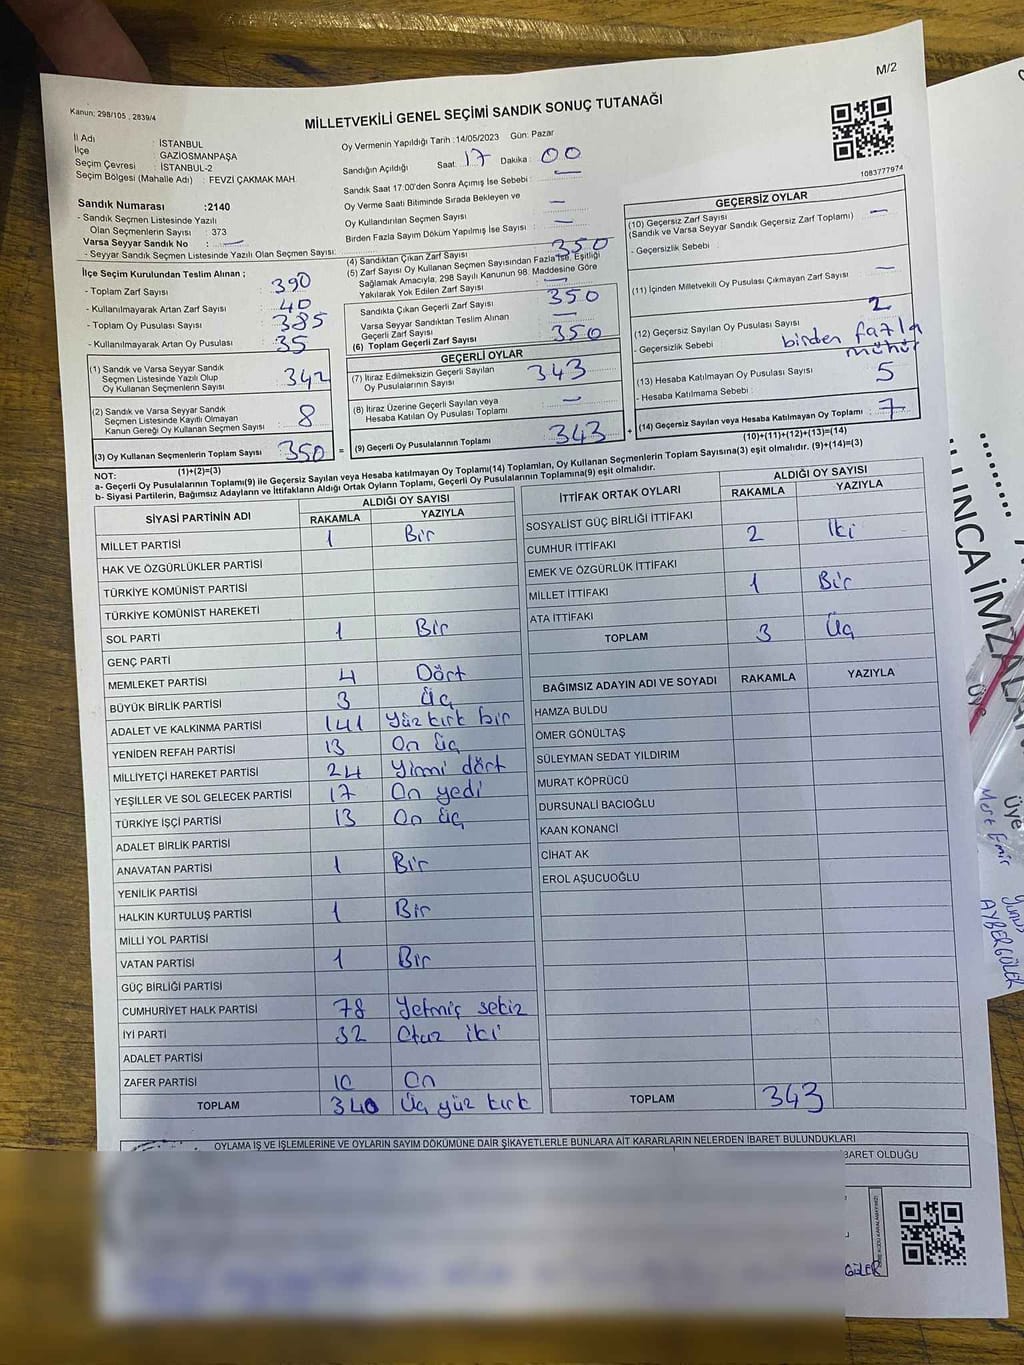 M/2
Kanun; 298/105 , 2839/4
MİLLETVEKİLİ GENEL SEÇİMİ SANDIK SONUÇ TUTANAĞI
İl Adı : İSTANBUL
İlçe : GAZİOSMANPAŞA
Seçim Çevresi : İSTANBUL-2
Seçim Bölgesi (Mahalle Adı) : FEVZİ ÇAKMAK MAH.
Oy Vermenin Yapıldığı Tarih :14/05/2023 Gün: Pazar
Sandığın Açıldığı Saat: 17 Dakika : 00
Sandık Saat 17:00'den Sonra Açımış İse Sebebi : —
Oy Verme Saati Bitiminde Sırada Bekleyen ve
Oy Kullandırılan Seçmen Sayısı : —
Birden Fazla Sayım Döküm Yapılmış İse Sebebi : —
1083777974
Sandık Numarası :2140
- Sandık Seçmen Listesinde Yazılı
Olan Seçmenlerin Sayısı : 373
Varsa Seyyar Sandık No : —
- Seyyar Sandık Seçmen Listesinde Yazılı Olan Seçmen Sayısı:
İlçe Seçim Kurulundan Teslim Alınan ;
- Toplam Zarf Sayısı : 390
- Kullanılmayarak Artan Zarf Sayısı : 40
- Toplam Oy Pusulası Sayısı : 385
- Kullanılmayarak Artan Oy Pusulası : 35
(1) Sandık ve Varsa Seyyar Sandık
Seçmen Listesinde Yazılı Olup
Oy Kullanan Seçmenlerin Sayısı : 342
(2) Sandık ve Varsa Seyyar Sandık
Seçmen Listesinde Kayıtlı Olmayan
Kanun Gereği Oy Kullanan Seçmen Sayısı : 8
(3) Oy Kullanan Seçmenlerin Toplam Sayısı : 350
(1)+(2)=(3)
(4) Sandıktan Çıkan Zarf Sayısı : 350
(5) Zarf Sayısı Oy Kullanan Seçmen Sayısından Fazla İse, Eşitliği
Sağlamak Amacıyla, 298 Sayılı Kanunun 98. Maddesine Göre
Yakılarak Yok Edilen Zarf Sayısı : —
Sandıkta Çıkan Geçerli Zarf Sayısı : 350
Varsa Seyyar Sandıktan Teslim Alınan
Geçerli Zarf Sayısı : —
(6) Toplam Geçerli Zarf Sayısı : 350
GEÇERLİ OYLAR
(7) İtiraz Edilmeksizin Geçerli Sayılan
Oy Pusulalarının Sayısı : 343
(8) İtiraz Üzerine Geçerli Sayılan veya
Hesaba Katılan Oy Pusulası Toplamı : —
(9) Geçerli Oy Pusulalarının Toplamı : 343
GEÇERSİZ OYLAR
(10) Geçersiz Zarf Sayısı
(Sandık ve Varsa Seyyar Sandık Geçersiz Zarf Toplamı) : —
- Geçersizlik Sebebi :
(11) İçinden Milletvekili Oy Pusulası Çıkmayan Zarf Sayısı : —
(12) Geçersiz Sayılan Oy Pusulası Sayısı : 2
- Geçersizlik Sebebi : birden fazla
mühür
(13) Hesaba Katılmayan Oy Pusulası Sayısı : 5
- Hesaba Katılmama Sebebi :
(14) Geçersiz Sayılan veya Hesaba Katılmayan Oy Toplamı : 7
(10)+(11)+(12)+(13)=(14)
NOT:
a- Geçerli Oy Pusulalarının Toplamı(9) ile Geçersiz Sayılan veya Hesaba katılmayan Oy Toplamı(14) Toplamları, Oy Kullanan Seçmenlerin Toplam Sayısına(3) eşit olmalıdır. (9)+(14)=(3)
b- Siyasi Partilerin, Bağımsız Adayların ve İttifakların Aldığı Ortak Oyların Toplamı, Geçerli Oy Pusulalarının Toplamına(9) eşit olmalıdır.
SİYASİ PARTİNİN ADI ALDIĞI OY SAYISI
RAKAMLA YAZIYLA
MİLLET PARTİSİ 1 Bir
HAK VE ÖZGÜRLÜKLER PARTİSİ
TÜRKİYE KOMÜNİST PARTİSİ
TÜRKİYE KOMÜNİST HAREKETİ
SOL PARTİ 1 Bir
GENÇ PARTİ
MEMLEKET PARTİSİ 4 Dört
BÜYÜK BİRLİK PARTİSİ 3 Üç
ADALET VE KALKINMA PARTİSİ 141 Yüz kırk bir
YENİDEN REFAH PARTİSİ 13 On üç
MİLLİYETÇİ HAREKET PARTİSİ 24 Yirmi dört
YEŞİLLER VE SOL GELECEK PARTİSİ 17 On yedi
TÜRKİYE İŞÇİ PARTİSİ 13 On üç
ADALET BİRLİK PARTİSİ
ANAVATAN PARTİSİ 1 Bir
YENİLİK PARTİSİ
HALKIN KURTULUŞ PARTİSİ 1 Bir
MİLLİ YOL PARTİSİ
VATAN PARTİSİ 1 Bir
GÜÇ BİRLİĞİ PARTİSİ
CUMHURİYET HALK PARTİSİ 78 Yetmiş sekiz
İYİ PARTİ 32 Otuz iki
ADALET PARTİSİ
ZAFER PARTİSİ 10 On
TOPLAM 340 Üç yüz kırk
İTTİFAK ORTAK OYLARI ALDIĞI OY SAYISI
RAKAMLA YAZIYLA
SOSYALİST GÜÇ BİRLİĞİ İTTİFAKI
CUMHUR İTTİFAKI 2 İki
EMEK VE ÖZGÜRLÜK İTTİFAKI
MİLLET İTTİFAKI 1 Bir
ATA İTTİFAKI
TOPLAM 3 Üç
BAĞIMSIZ ADAYIN ADI VE SOYADI RAKAMLA YAZIYLA
HAMZA BULDU
ÖMER GÖNÜLTAŞ
SÜLEYMAN SEDAT YILDIRIM
MURAT KÖPRÜCÜ
DURSUNALİ BACIOĞLU
KAAN KONANCİ
CİHAT AK
EROL AŞUCUOĞLU
TOPLAM 343
OYLAMA İŞ VE İŞLEMLERİNE VE OYLARIN SAYIM DÖKÜMÜNE DAİR ŞİKAYETLERLE BUNLARA AİT KARARLARIN NELERDEN İBARET BULUNDUKLARI
BARET OLDUĞU
GÜLER
UNCA İMZALA
Üye
Üye
Mert Emir
Yunus
AYBERGÜLER